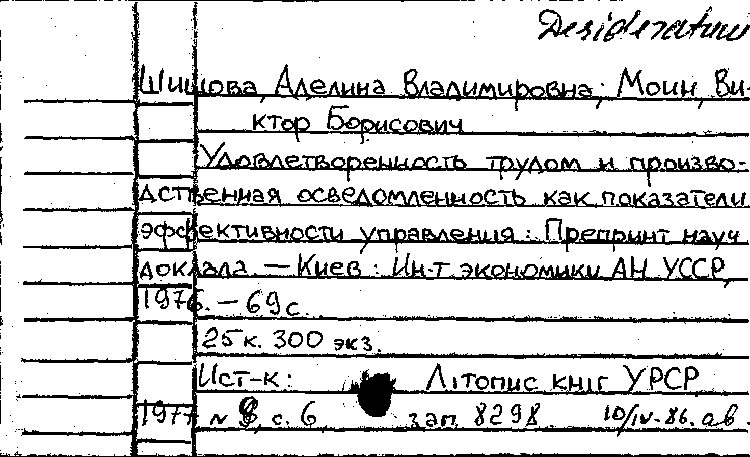 Desideratum
Шишова, Аделина Владимировна; Моин, Ви-
ктор Борисович
Удовлетворенность трудом и произво-
дственная осведомленность как показатели
эффективности управления: Препринт науч.
доклада. — Киев: Ин-т экономики АН УССР,
1976. — 69 с.
25 к. 300 экз.
Ист-к: Літопис книг УРСР
1977 № 8, с. 6 зап. 8298 10/IV-86. ав.